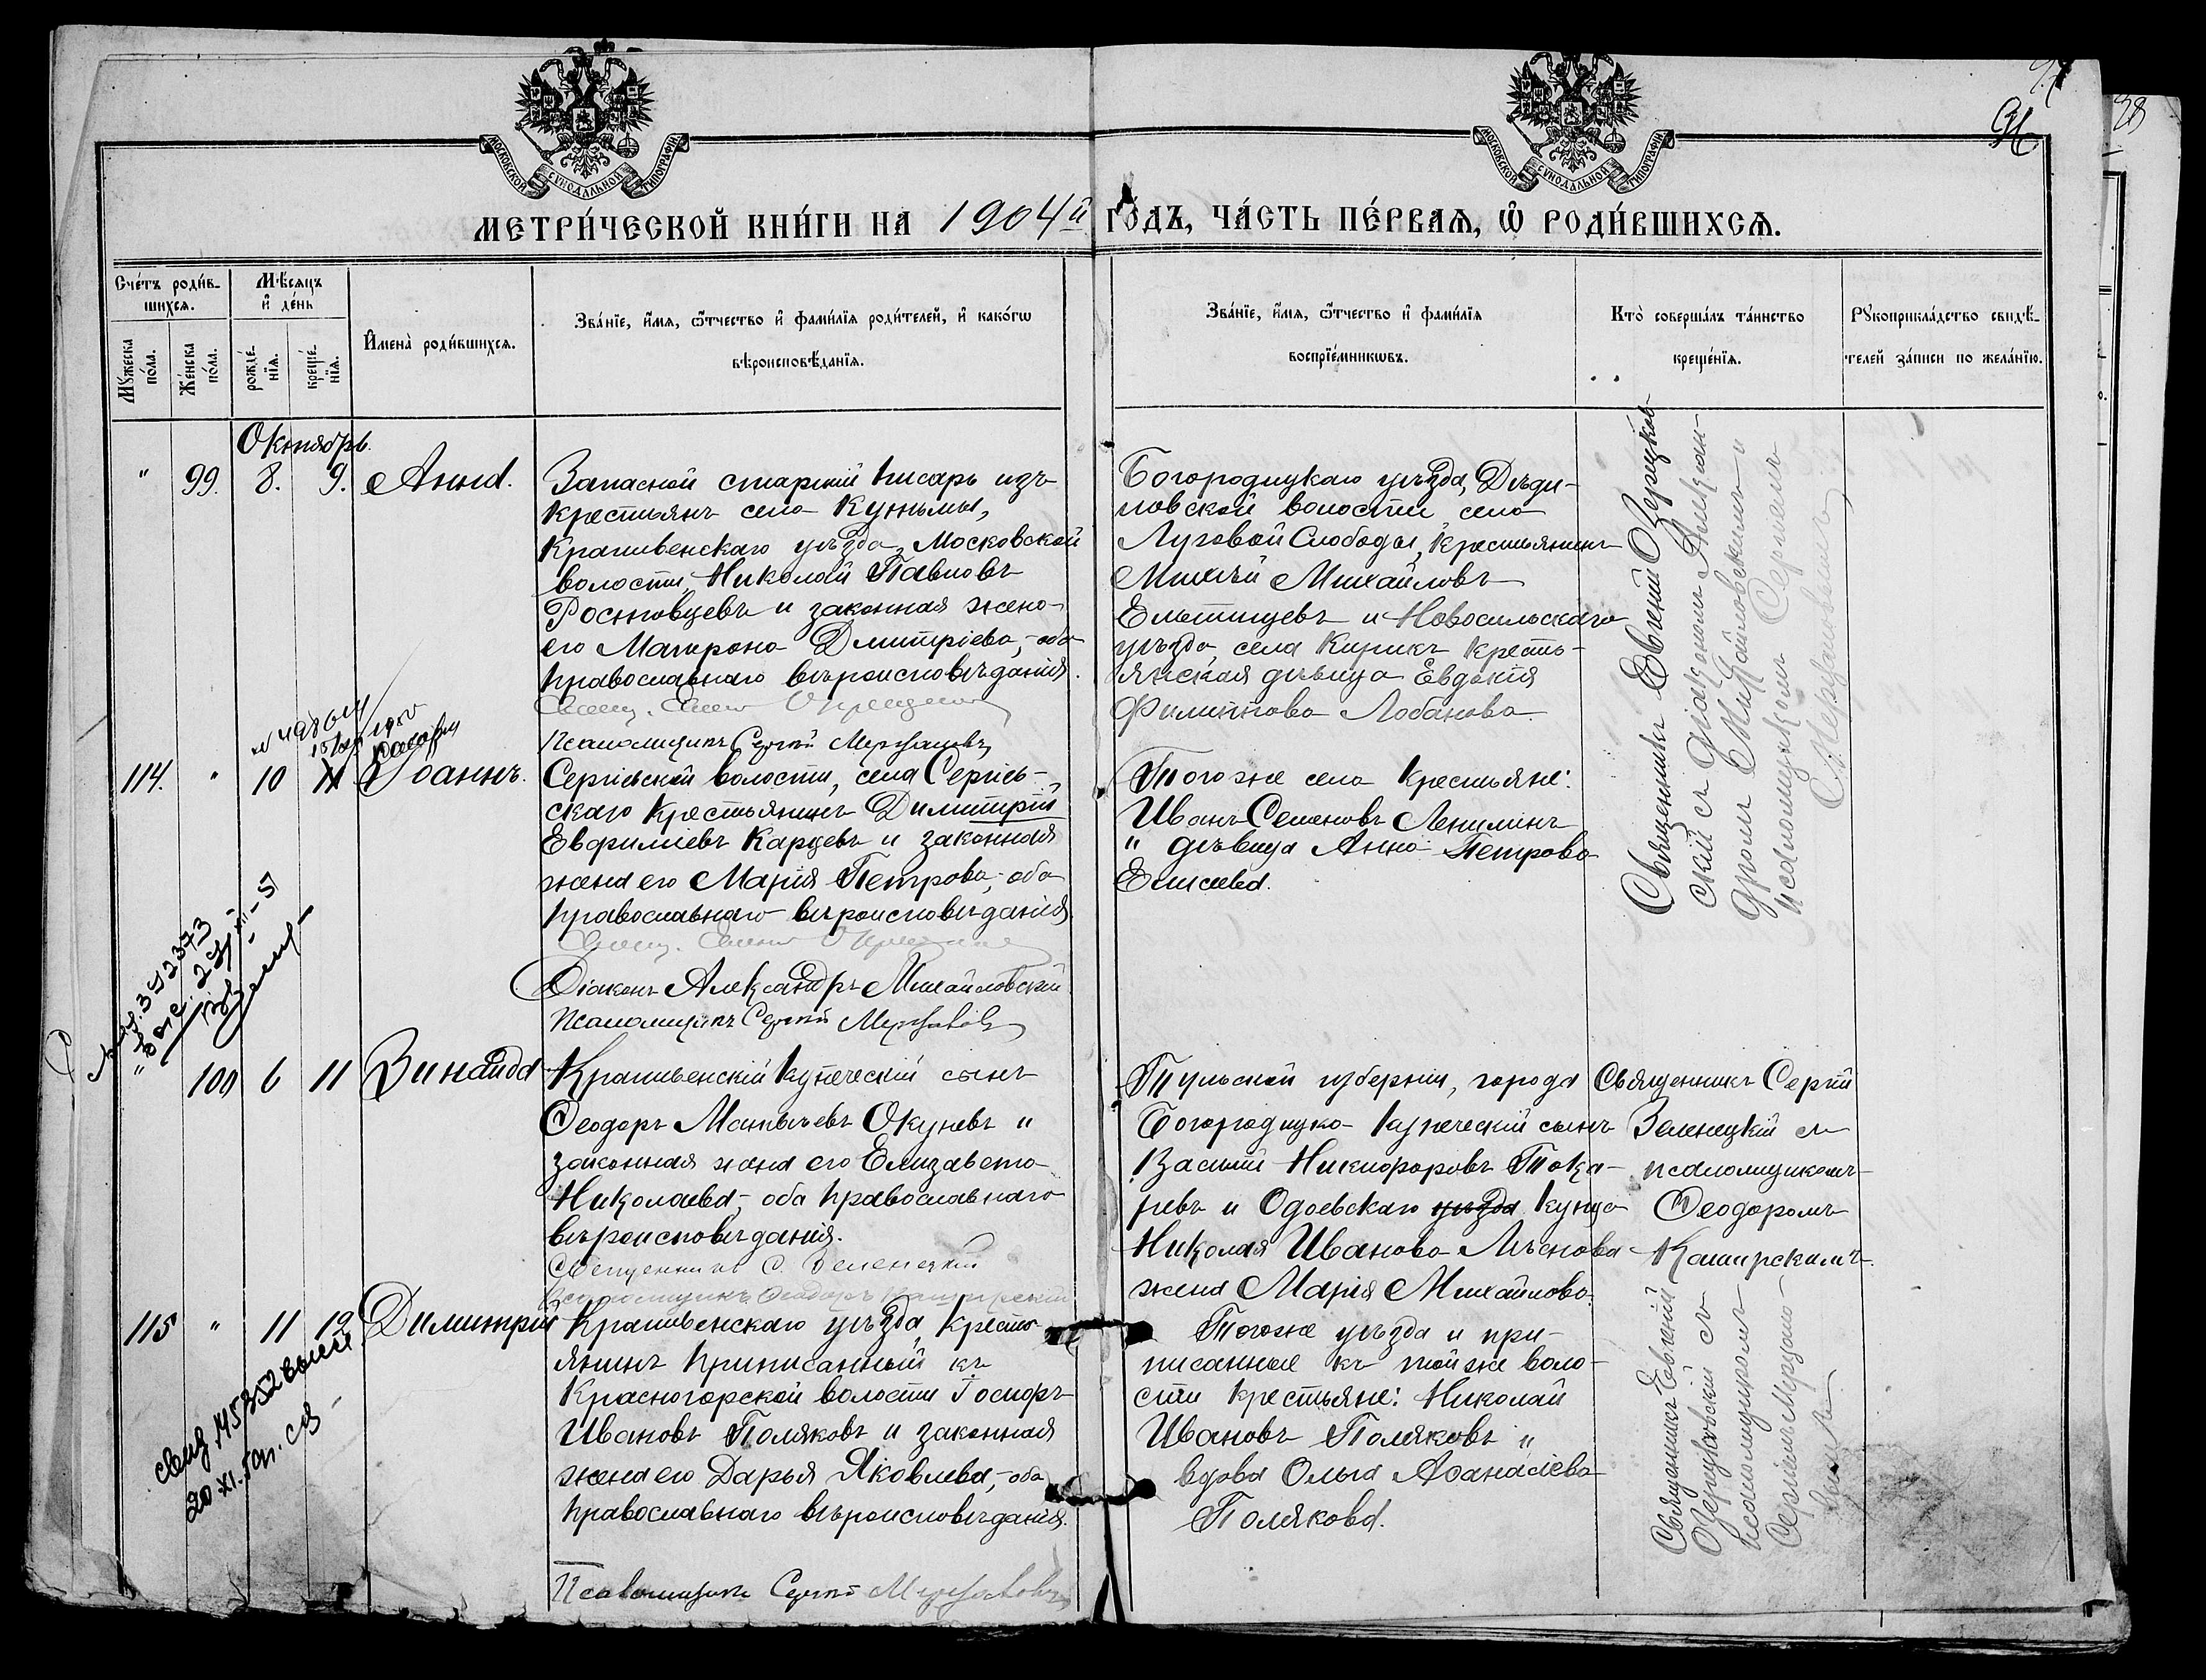 97
98
96
МОСКОВСКОЙ СУНОДАЛЬНОЙ ТИПОГРАФІИ
МОСКОВСКОЙ СУНОДАЛЬНОЙ ТИПОГРАФІИ
МЕТРИ́ЧЕСКОЙ КНИ́ГИ НА 1904й ГО́ДЪ, ЧА́СТЬ ПЕ́РВАѦ, Ѡ РОДИ́ВШИХСѦ.
Сче́тъ роди́в-
шихсѧ.
Мꙋ́жеска по́ла.
Же́нска по́ла.
Мѣ́сѧцъ
и де́нь
рожде́-нїѧ.
креще́-нїѧ.
Имена̀ роди́вшихсѧ.
Зва́нїе, и́мѧ, ѻ́тчество и фами́лїѧ роди́телей, и како́гѡ
вѣроисповѣ́данїѧ.
Зва́нїе, и́мѧ, ѻ́тчество и фами́лїѧ
воспрїе́мникѡвъ.
Кто̀ соверша́лъ та́инство
креще́нїѧ.
Рꙋкоприкла́дство свидѣ́-
телей за́писи по жела́нїю.
Октябрь.
" 99. 8. 9. Анна.
Запасной старшій писарь изъ
крестьянъ села Кузьмы,
Крапивенскаго уѣзда, Московской
волости, Николай Павловъ
Ростовцевъ и законная жена
его Матрона Димитріева, - оба
православнаго вѣроисповѣданія.
Псаломщикъ Сергій Мерцаловъ
Богородицкаго уѣзда, Дѣди-
ловской волости, села
Луговой Слободы, крестьянинъ
Михаилъ Михайловъ
и Новосильскаго
уѣзда, села крестья-
янская дѣвица Евдокія
Филиппова Лобанова.
Священникъ Евгеній Озерецков-
скій съ діакономъ Алексан-
дромъ Михайловскимъ и
псаломщикомъ Сергіемъ
Мерцаловымъ
114. " 10 11 Іоаннъ.
Сергіевской волости, села Сергіев-
скаго крестьянинъ Димитрій
Евфиміевъ Карцевъ и законная
жена его Марія Петрова, - оба
православнаго вѣроисповѣданія
Діаконъ Александръ Михайловскій
Псаломщикъ Сергій Мерцаловъ
Того же села крестьяне:
Иванъ Семеновъ
и дѣвица Анна Петрова
Елисеева.
" 100 6 11 Зинаида
Крапивенскій купеческій сынъ
Ѳеодоръ Матвѣевъ Окуневъ и
законная жена его Елизавета
Николаева, оба православнаго
вѣроисповѣданія.
Священникъ С. Зеленецкій
Псаломщикъ Ѳеодоръ Каширскій
Тульской губерніи, города
Богородицка купеческій сынъ
Василій Никифоровъ Тока-
ревъ и Одоевскаго уѣзда купца
Николая Иванова Лѣснова
жена Марія Михайлова.
Священникъ Сергій
Зеленецкій съ
псаломщикомъ
Ѳеодоромъ
Каширскимъ.
115 " 11 12 Димитрій
Крапивенскаго уѣзда, кресть-
янинъ приписанный къ
Красногорской волости
Ивановъ Поляковъ и законная
жена его Дарья Яковлева, - оба
православнаго вѣроисповѣданія.
Псаломщикъ Сергій Мерцаловъ
Того же уѣзда и при-
писанные къ той же воло-
сти крестьяне: Николай
Ивановъ Поляковъ и
вдова Ольга Аѳанасіева
Полякова.
Священникъ Евгеній
Озерецковскій съ
псаломщикомъ
Сергіемъ Мерцало-
вымъ